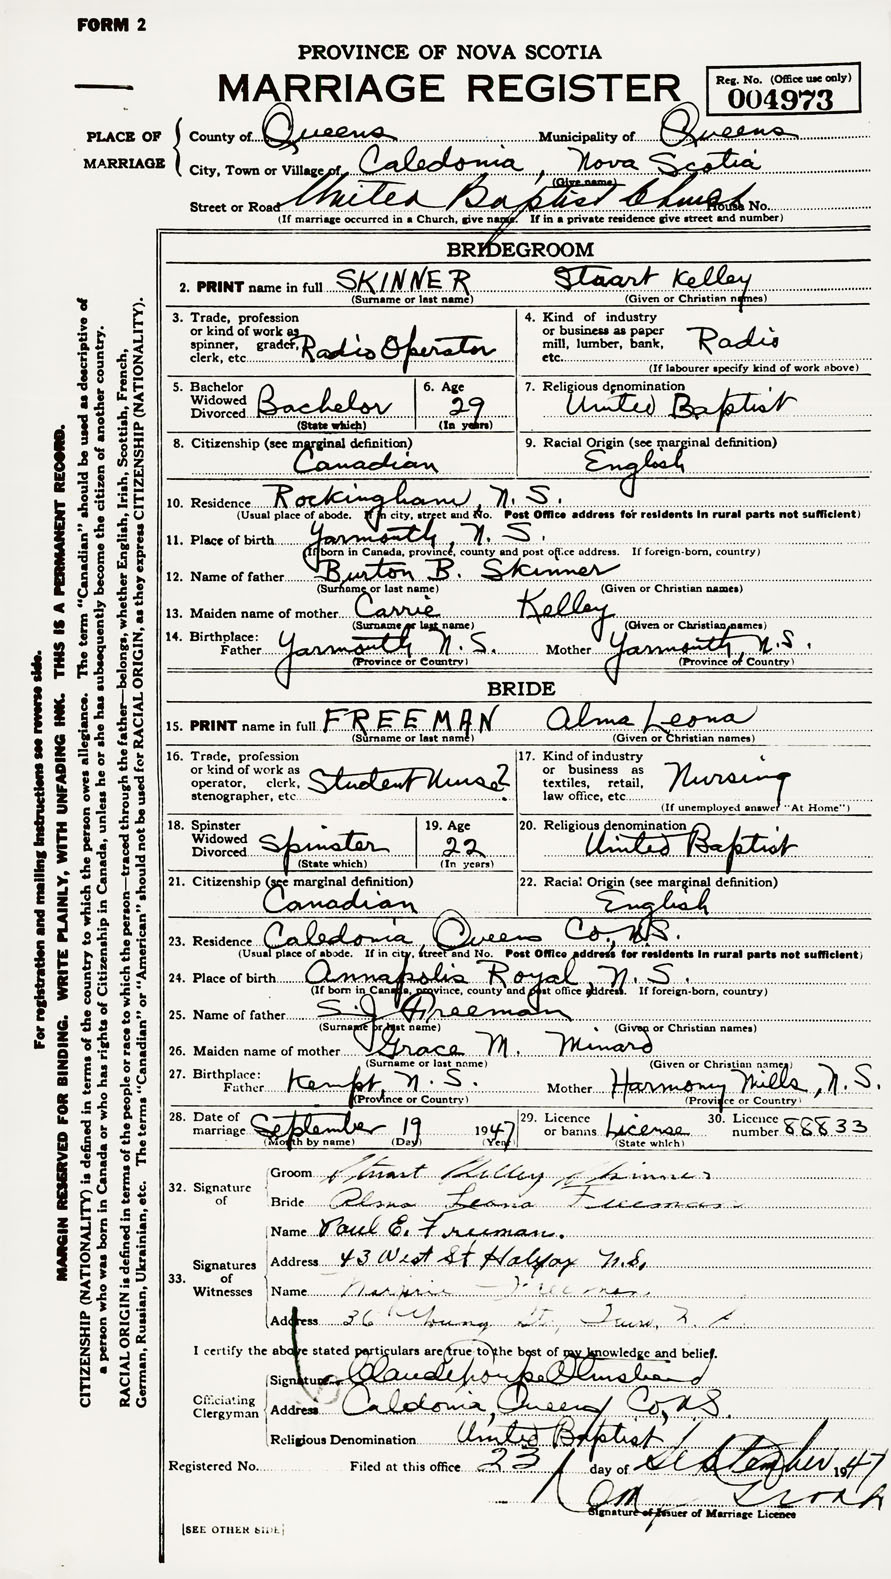 FORM 2
PROVINCE OF NOVA SCOTIA
MARRIAGE REGISTER
Reg. No. (Office use only)
004973
PLACE OF MARRIAGE
County of Queens Municipality of Queens
City, Town or Village of Caledonia, Nova Scotia
(Give name)
Street or Road United Baptist Church House No.
(If marriage occurred in a Church, give name. If in a private residence give street and number)
BRIDEGROOM
2. PRINT name in full SKINNER Stuart Kelley
(Surname or last name) (Given or Christian names)
3. Trade, profession or kind of work as spinner, grader, clerk, etc. Radio Operator
4. Kind of industry or business as paper mill, lumber, bank, etc. Radio
(If labourer specify kind of work above)
5. Bachelor Widowed Divorced Bachelor (State which)
6. Age 29 (In years)
7. Religious denomination United Baptist
8. Citizenship (see marginal definition) Canadian
9. Racial Origin (see marginal definition) English
10. Residence Rockingham, N.S.
(Usual place of abode. If in city, street and No. Post Office address for residents in rural parts not sufficient)
11. Place of birth Yarmouth, N.S.
(If born in Canada, province, county and post office address. If foreign-born, country)
12. Name of father Burton B. Skinner
(Surname or last name) (Given or Christian names)
13. Maiden name of mother Carrie Kelley
(Surname or last name) (Given or Christian names)
14. Birthplace: Father Yarmouth N.S. Mother Yarmouth, N.S.
(Province or Country) (Province or Country)
BRIDE
15. PRINT name in full FREEMAN Alma Leona
(Surname or last name) (Given or Christian names)
16. Trade, profession or kind of work as operator, clerk, stenographer, etc. Student Nurse
17. Kind of industry or business as textiles, retail, law office, etc. Nursing
(If unemployed answer "At Home")
18. Spinster Widowed Divorced Spinster (State which)
19. Age 22 (In years)
20. Religious denomination United Baptist
21. Citizenship (see marginal definition) Canadian
22. Racial Origin (see marginal definition) English
23. Residence Caledonia, Queens Co., N.S.
(Usual place of abode. If in city, street and No. Post Office address for residents in rural parts not sufficient)
24. Place of birth Annapolis Royal, N.S.
(If born in Canada, province, county and post office address. If foreign-born, country)
25. Name of father S.J. Freeman
(Surname or last name) (Given or Christian names)
26. Maiden name of mother Grace M. Minard
(Surname or last name) (Given or Christian names)
27. Birthplace: Father Kempt, N.S. Mother Harmony Mills, N.S.
(Province or Country) (Province or Country)
28. Date of marriage September 19 1947
(Month by name) (Day) (Year)
29. Licence or banns License (State which)
30. Licence number 88833
32. Signature of
Groom Stuart Kelley Skinner
Bride Alma Leona Freeman
33. Signatures of Witnesses
Name Paul E. Freeman.
Address 43 West St Halifax N.S.
Name Freeman
Address 36 Young St., Truro, N.S.
I certify the above stated particulars are true to the best of my knowledge and belief.
Officiating Clergyman
Signature Olmstead
Address Caledonia, Queens Co., N.S.
Religious Denomination United Baptist
Registered No. Filed at this office 23 day of September 1947
Signature of Issuer of Marriage Licence
[SEE OTHER SIDE]
For registration and mailing instructions see reverse side.
MARGIN RESERVED FOR BINDING. WRITE PLAINLY, WITH UNFADING INK. THIS IS A PERMANENT RECORD.
CITIZENSHIP (NATIONALITY) is defined in terms of the country to which the person owes allegiance. The term "Canadian" should be used as descriptive of
a person who was born in Canada or who has rights of Citizenship in Canada, unless he or she has subsequently become the citizen of another country.
RACIAL ORIGIN is defined in terms of the people or race to which the person—traced through the father—belongs, whether English, Irish, Scottish, French,
German, Russian, Ukrainian, etc. The terms "Canadian" or "American" should not be used for RACIAL ORIGIN, as they express CITIZENSHIP (NATIONALITY).